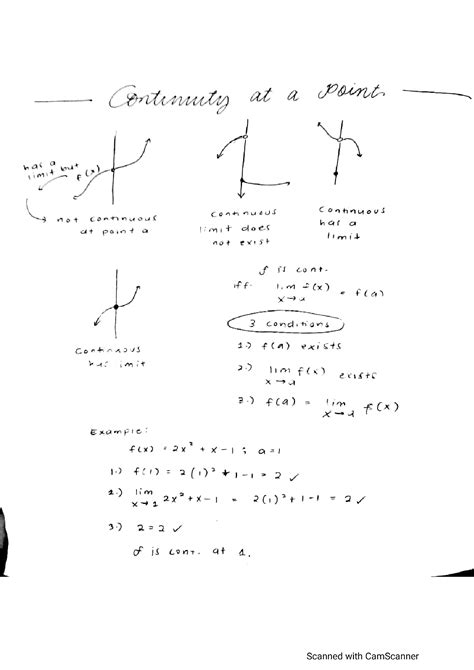 Continuity at a Point
has a
limit but f(x)
not continuous
at point a
Continuous
limit does
not exist
Continuous
has a
limit
Continuous
has imit
f is cont.
iff lim f(x) = f(a)
x→a
3 conditions
1.) f(a) exists
2.) lim f(x) exists
x→a
3.) f(a) = lim f(x)
x→a
Example:
f(x) = 2x² + x - 1 ; a = 1
1.) f(1) = 2(1)² + 1 - 1 = 2 ✓
2.) lim 2x² + x - 1 = 2(1)² + 1 - 1 = 2 ✓
x→1
3.) 2 = 2 ✓
f is cont. at 1.
Scanned with CamScanner